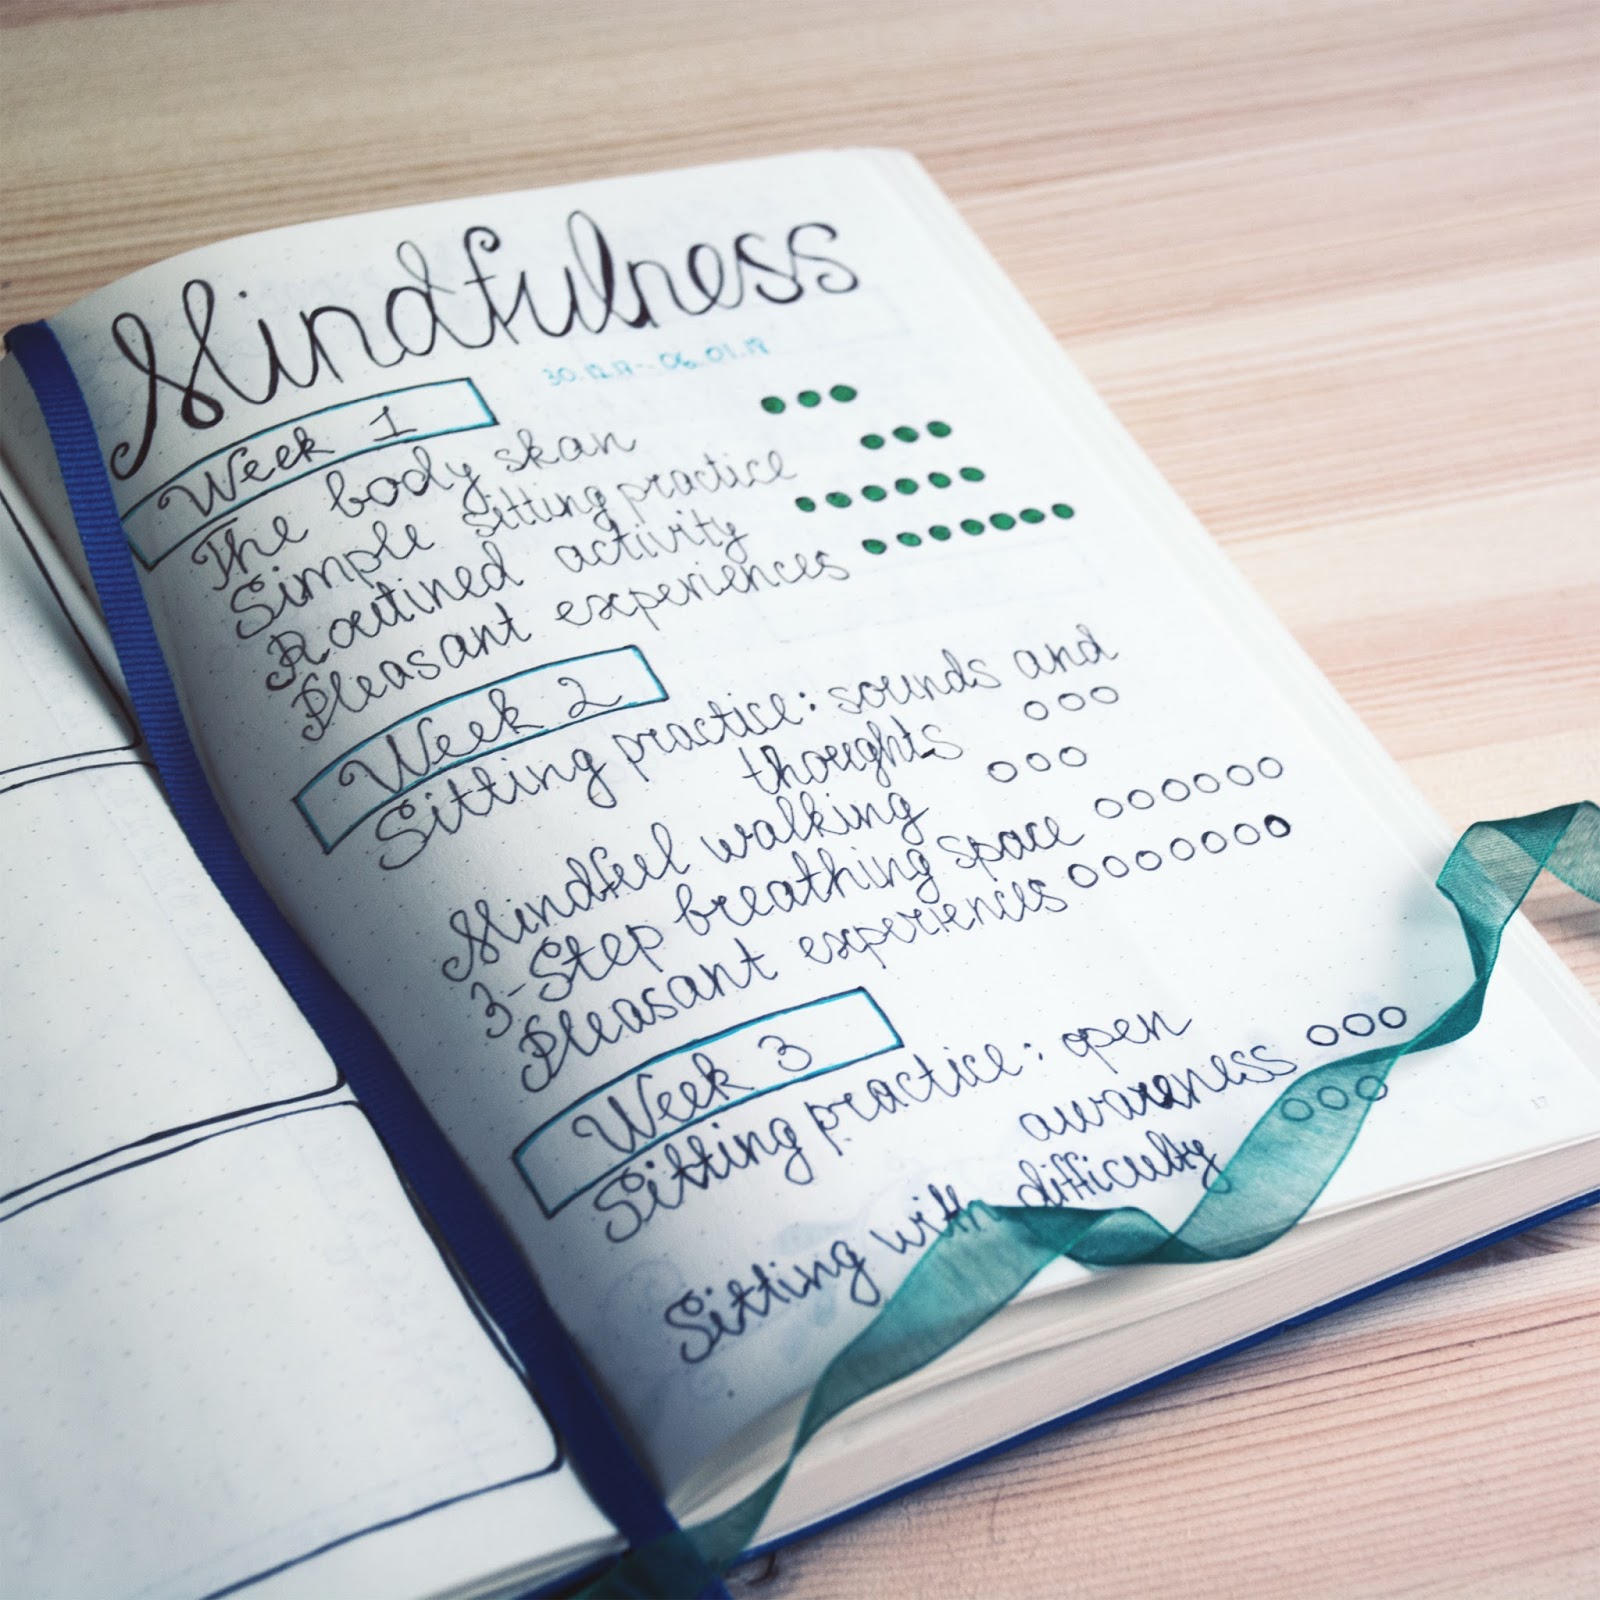 Mindfulness
30.12.17-06.01.18
Week 1
The body skan
Simple sitting practice
Routined activity
Pleasant experiences
Week 2
Sitting practice: sounds and
thoughts
Mindful walking
3-Step breathing space
Pleasant experiences
Week 3
Sitting practice: open
awareness
Sitting with difficulty
17